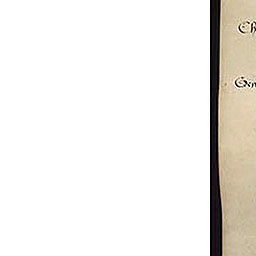 Ch
Gen